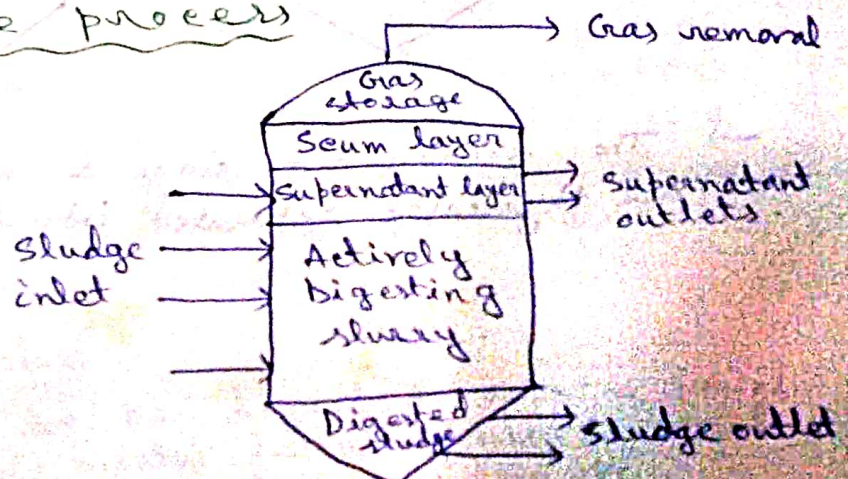 e process
Gas removal
Gas
storage
Scum layer
Supernatant layer
Supernatant
outlets
Sludge
inlet
Actively
Digesting
slurry
Digested
sludge
Sludge outlet